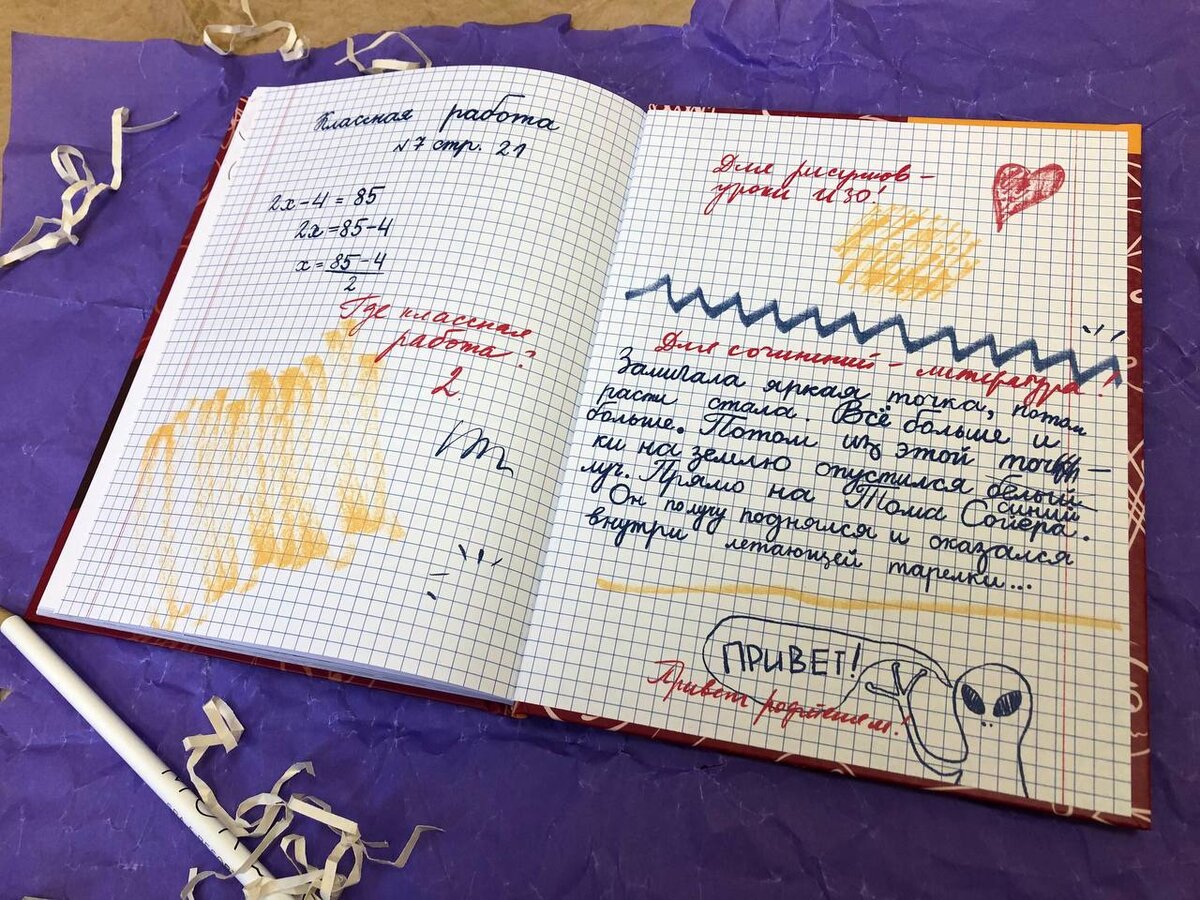 Классная работа
№7 стр. 21
2x-4 = 85
2x =85-4
x = 85-4
2
Где классная
работа?
2
Для рисунков -
уроки ИЗО!
Для сочинений - литература!
Замигала яркая точка, потом
расти стала. Всё больше и
больше. Потом из этой точ-
ки на землю опустился белый
синий
луч. Прямо на Тома Сойера.
Он по лучу поднялся и оказался
внутри летающей тарелки...
ПРИВЕТ!
Привет родителям!